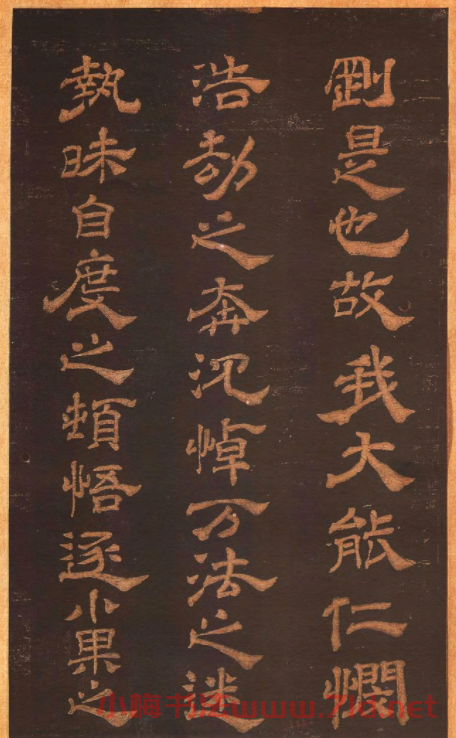 剛是也故我大能仁憫
浩劫之奔沉悼万法之迷
執昧自度之頓悟逐小果之
小梅书法www.7ka.net